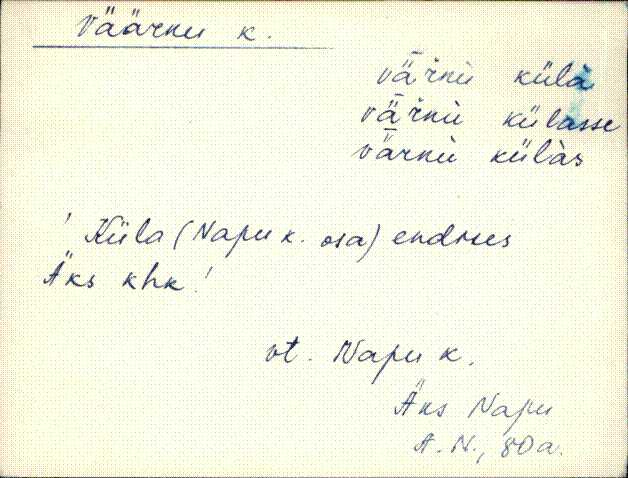 Väärnu k.
vǟrnu külà
vǟrnu külasse
vǟrnu külàs
! Küla (Napu k. osa) endises
Äks khk!
vt. Napu k.
Äks Napu
A. N., 80a.